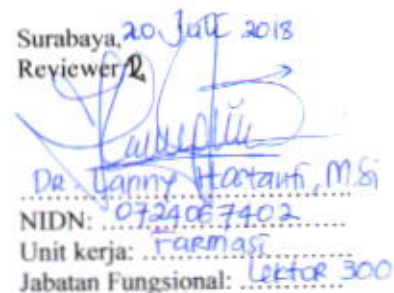 Surabaya, 20 Juli 2018
Reviewer 2
Dr. Lanny Hartanti, M.Si
NIDN: 0724067402
Unit kerja: Farmasi
Jabatan Fungsional: Lektor 300